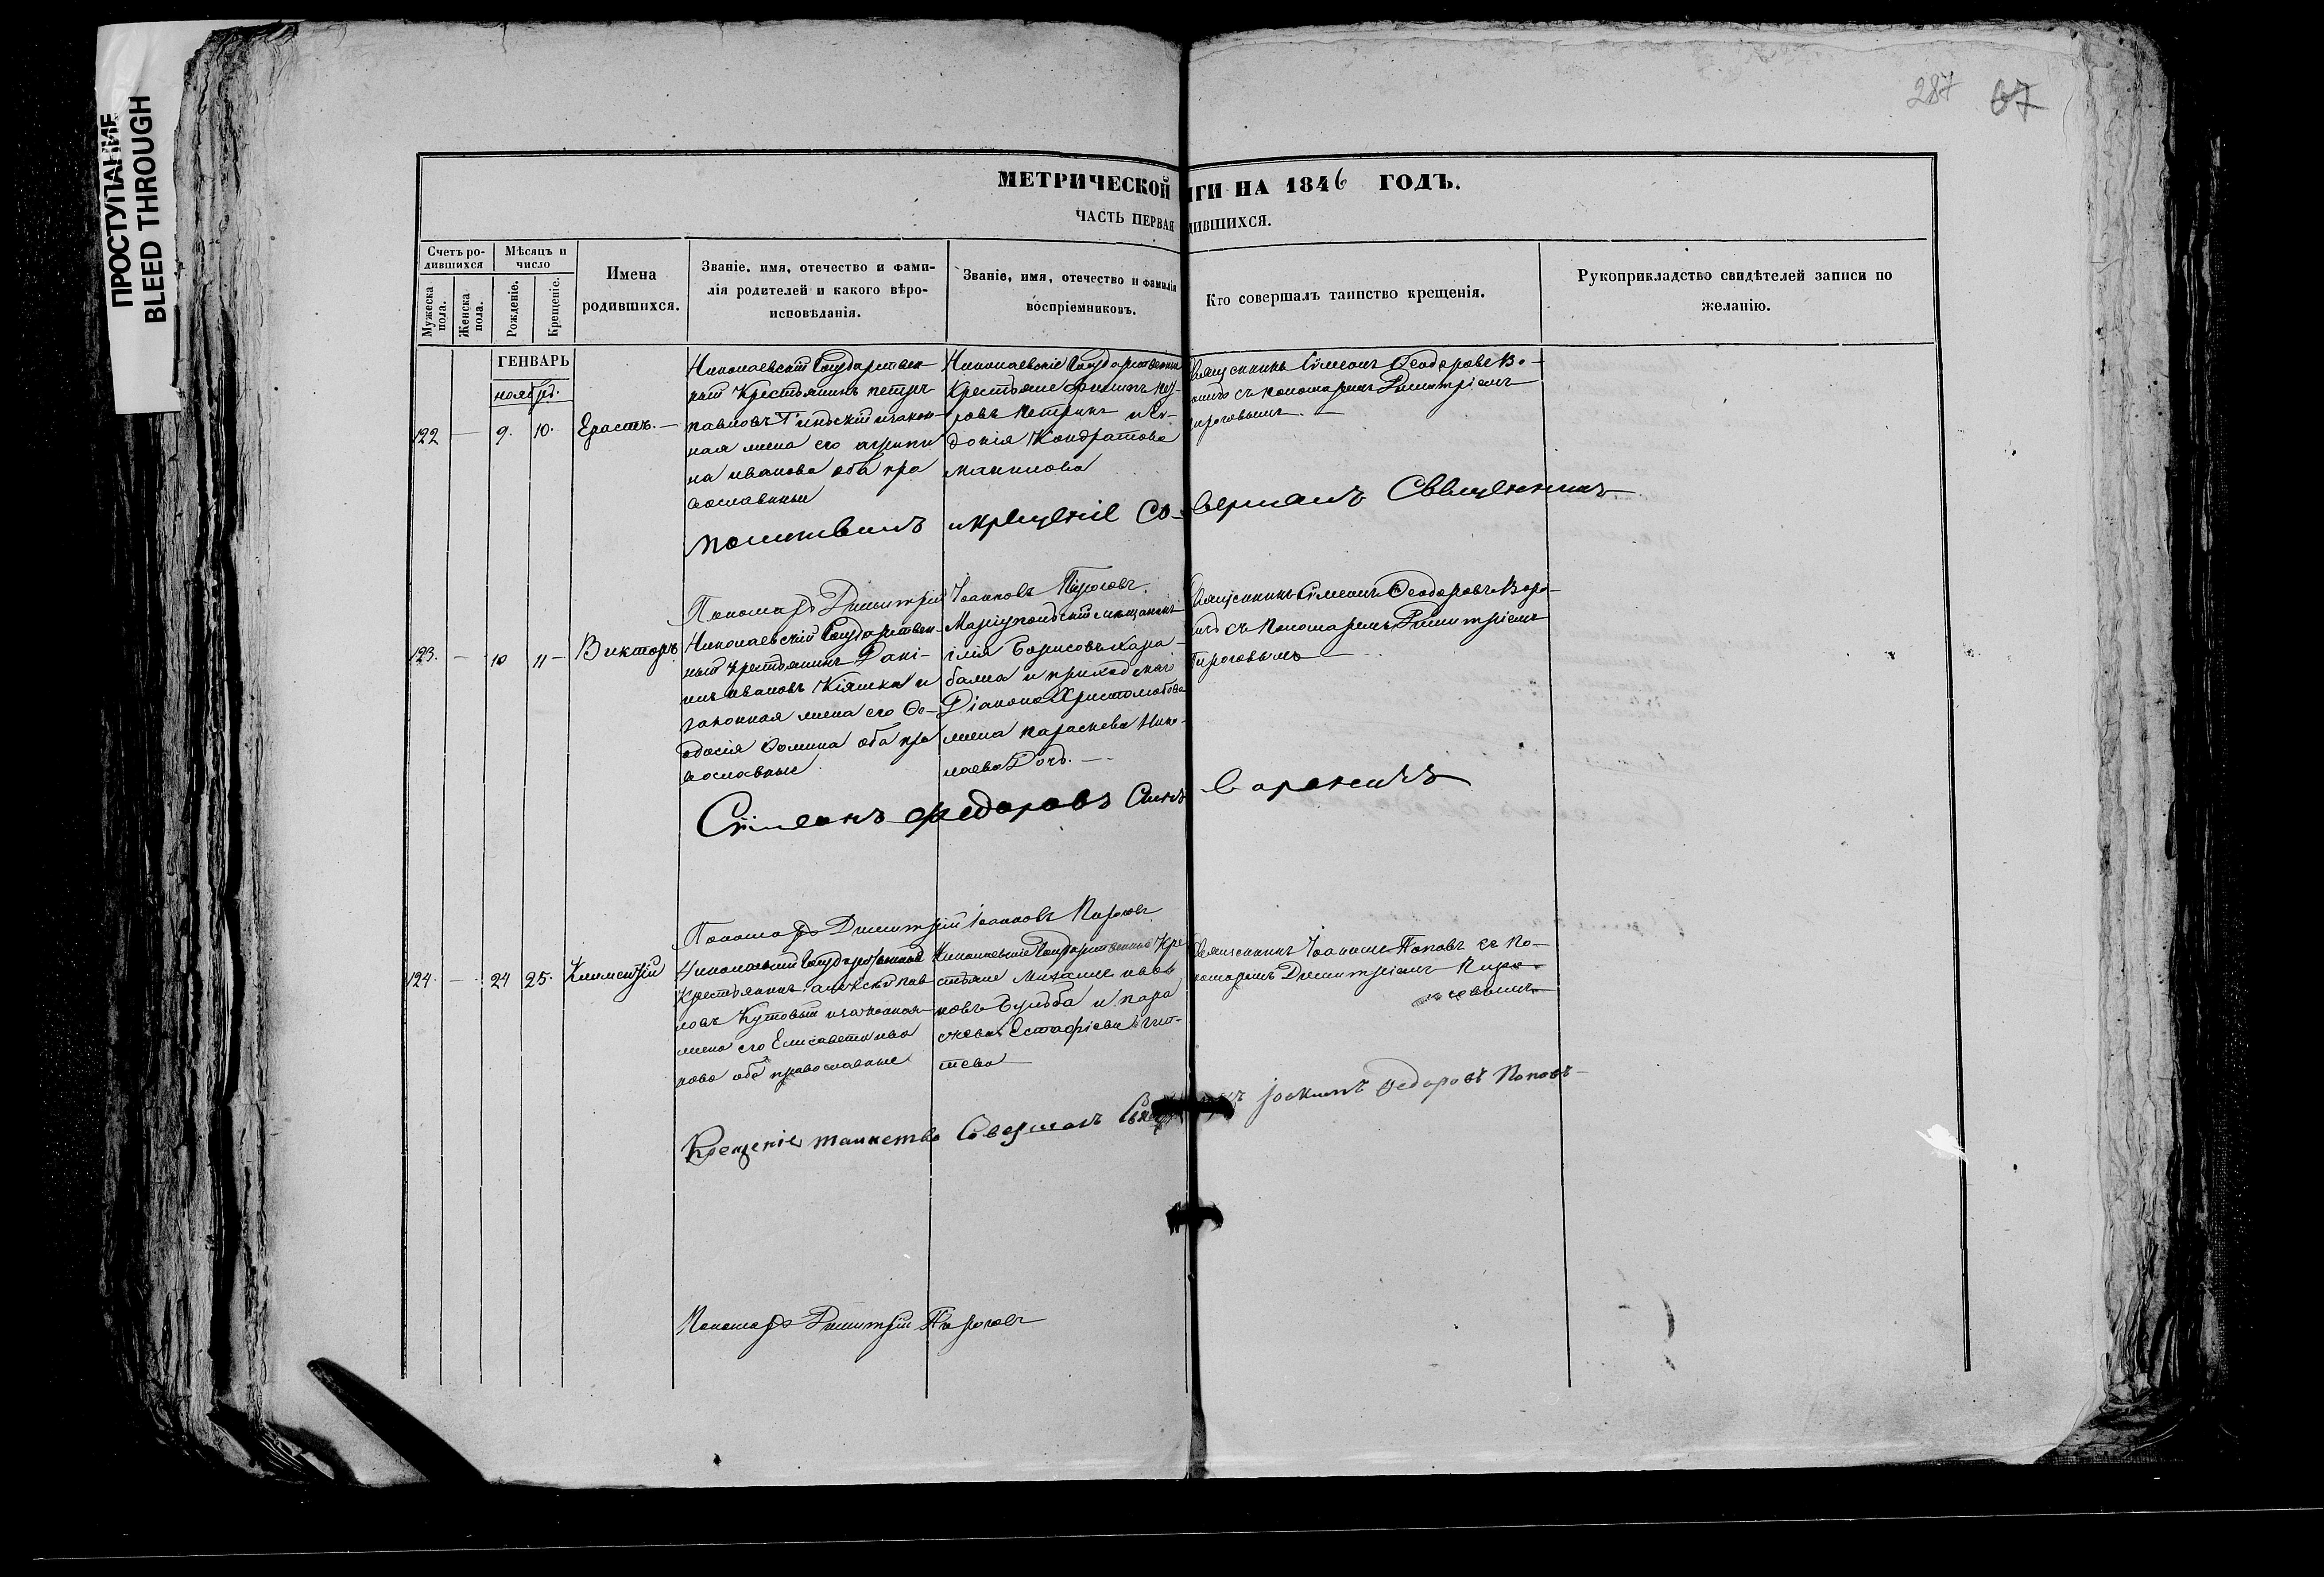 ПРОСТУПАНИЕ
BLEED THROUGH
287 67
МЕТРИЧЕСКОЙ ГИ НА 1846 ГОДЪ.
ЧАСТЬ ПЕРВАЯ ДИВШИХСЯ.
Счетъ ро-
дившихся
Мужеска
пола.
Женска
пола.
Мѣсяцъ и
число
Рожденіе.
Крещеніе.
Имена
родившихся.
Званіе, имя, отечество и фами-
лія родителей и какого вѣро-
исповѣданія.
Званіе, имя, отечество и фамилія
воспріемниковъ.
Кто совершалъ таинство крещенія.
Рукоприкладство свидѣтелей записи по
желанію.
ГЕНВАРЬ
ноябрь.
122 — 9. 10. Ерастъ. —
Николаевскій Государствен-
ный Крестьянинъ петръ
павловъ и закон-
ная жена его агрипи
на иванова оба пра
вославныи
Николаевскіе Государственныи
Крестьяне филипъ
ровъ петринъ и Ев-
докія Кондратова
Священникъ Сімеонъ Феодоровъ Во-
съ пономаремъ Димитріемъ
пироговымъ —
молитвилъ и крещеніе совершалъ Священникъ
Пономарь Димитрій Іоанновъ Пироговъ
123. — 10 11 — Викторъ
Николаевскій Государствен-
ный крестьянинъ Дані-
илъ ивановъ Кіяшка и
законная жена его Фе-
одосія Фомина оба пра
вославные
Маріупольскій мещанинъ
илія Борисовъ Кара-
и приходскаго
Діакона Христолюбова
жена параскева Нико-
лаева Дочь. —
Священникъ Сімеонъ Феодоровъ Воро-
съ Пономаремъ Димитріемъ
Пироговымъ
Сімеонъ Федоровъ Сынъ
Пономарь Димитрій Іоанновъ Пироговъ
124. — 24 25. Климентій
Николаевскій Государственный
Крестьянинъ алексѣй пав
ловъ Кутовый и законная
жена его Елисавета ива
нова оба православные
Николаевскіе Государственные Кре
стьяне Михаилъ иван
новъ Бульба и пара
скева Естафіева
Священникъ Іоакимъ Поповъ съ По-
номаремъ Димитріемъ Пиро-
говымъ
Крещеніе таинство Совершалъ Іоакимъ Федоровъ Поповъ
Пономарь Димитрій Пироговъ